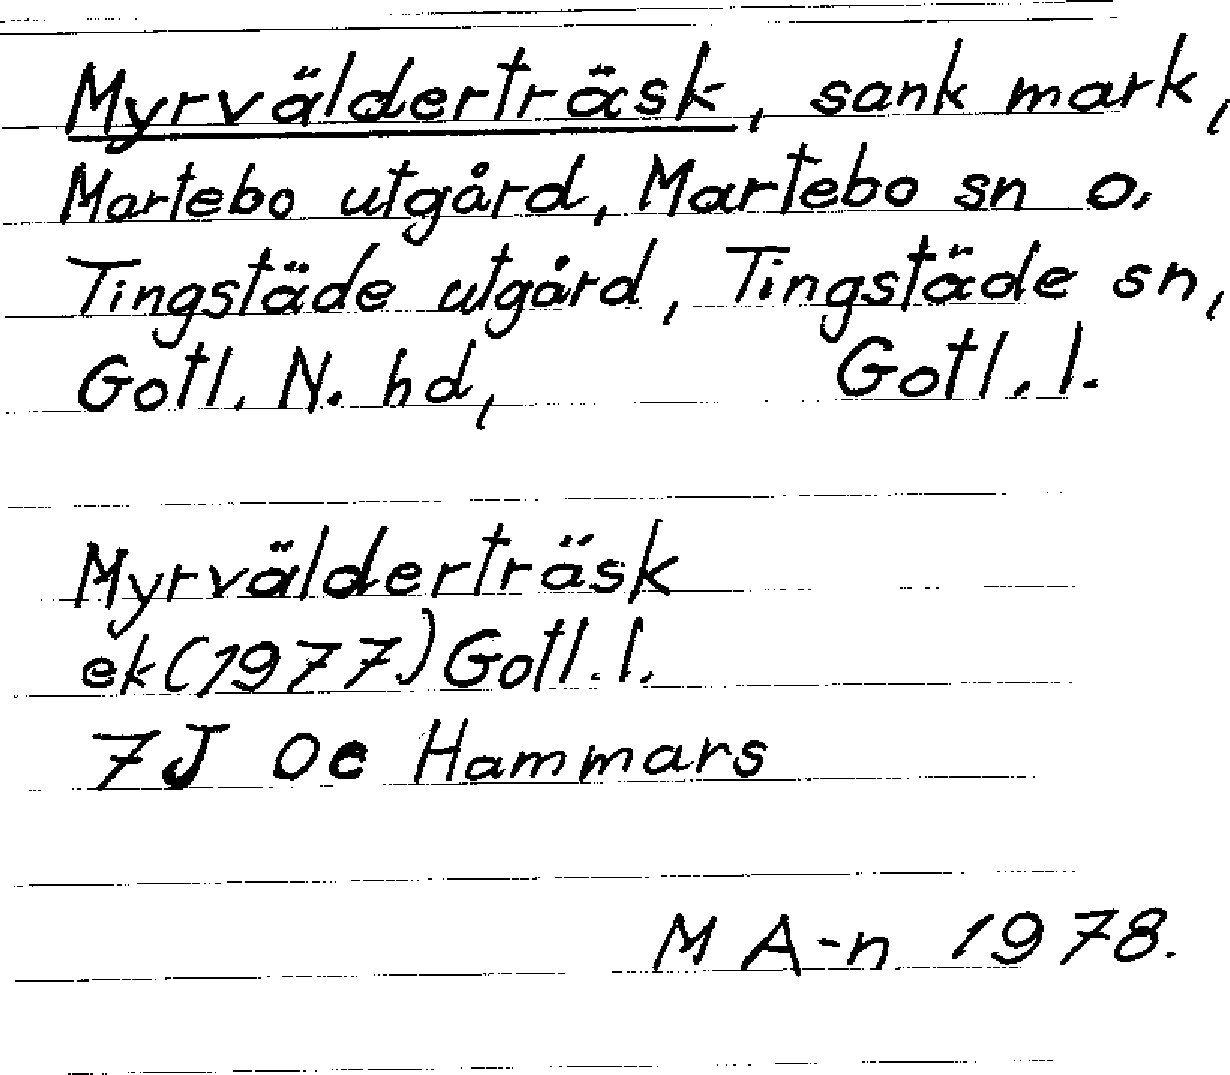 Myrvälderträsk, sank mark,
Martebo utgård, Martebo sn o.
Tingstäde utgård, Tingstäde sn,
Gotl. N. hd, Gotl. l.
Myrvälderträsk
ek (1977) Gotl. l.
7J 0e Hammars
M A-n 1978.